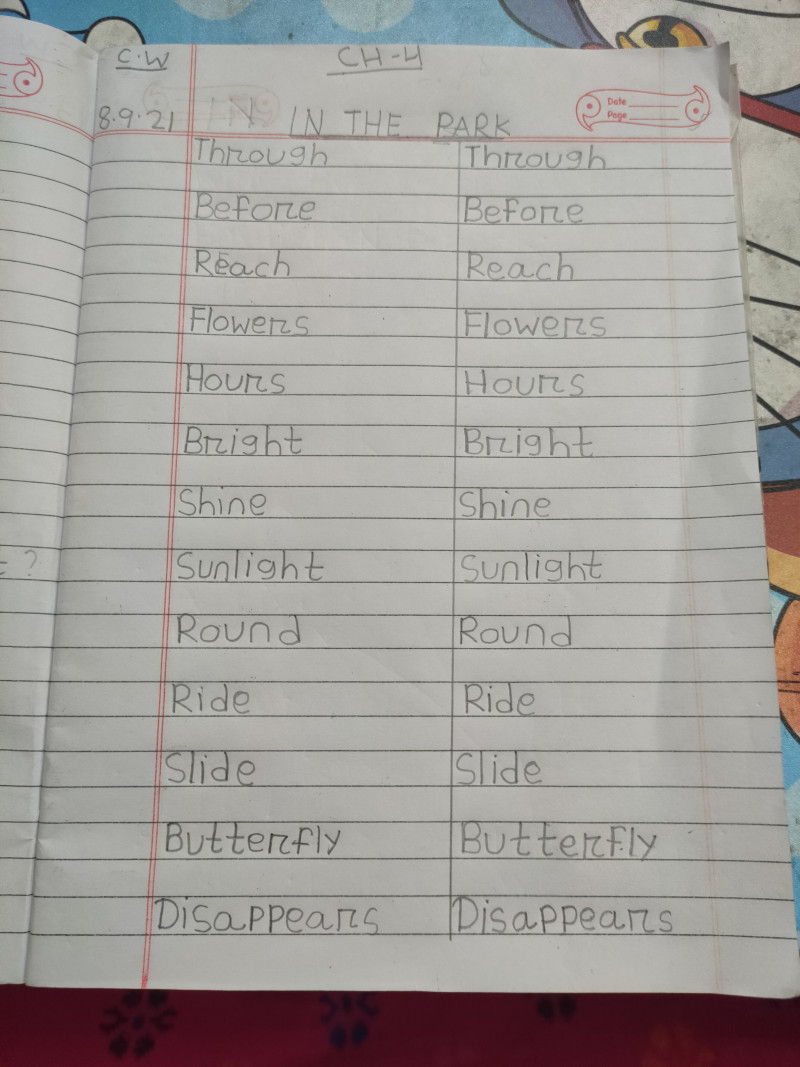 C.W CH-4
8.9.21 IN THE PARK
Date
Page
Through Through
Before Before
Reach Reach
Flowers Flowers
Hours Hours
Bright Bright
Shine Shine
Sunlight Sunlight
Round Round
Ride Ride
Slide Slide
Butterfly Butterfly
Disappears Disappears
?